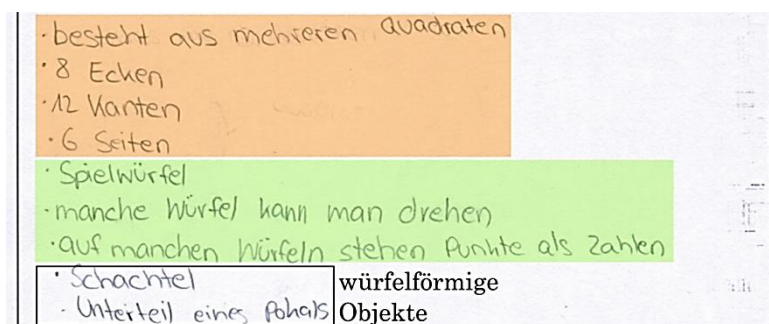 · besteht aus mehreren Quadraten
· 8 Ecken
· 12 Kanten
· 6 Seiten
· Spielwürfel
· manche Würfel kann man drehen
· auf manchen Würfeln stehen Punkte als Zahlen
· Schachtel
· Unterteil eines Pokals
würfelförmige
Objekte